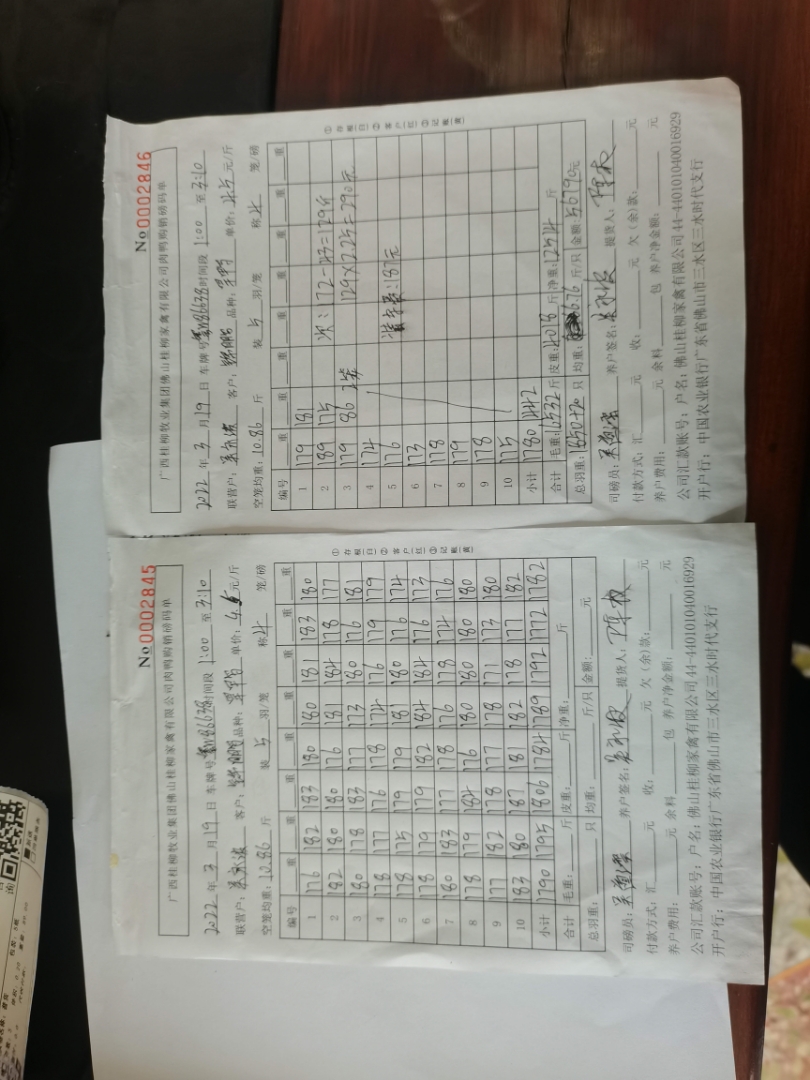 No 0002845
广西桂柳牧业集团佛山桂柳家禽有限公司肉鸭购销磅码单
2022 年 3 月 19 日 车牌号 时间段 1:00 至 3:10
联营户: 客户: 品种: 单价: 元/斤
空笼均重: 10.86 斤 装 5 羽/笼 称 4 笼/磅
编号 重 重 重 重 重 重 重 重
1 176 182 183 180 180 181 183 180
2 182 180 180 176 181 184 178 177
3 180 178 183 177 173 180 176 181
4 178 177 176 178 174 176 179 179
5 178 175 179 179 181 180 176 174
6 178 179 179 182 184 184 176 173
7 180 183 177 178 176 178 174 176
8 178 179 184 176 180 180 180 180
9 177 182 178 177 178 171 173 180
10 183 180 187 181 182 178 177 182
小计 1790 1795 1806 1784 1789 1792 1772 1782
合计 毛重: 斤 皮重: 斤 净重: 斤
总羽重: 只 均重: 斤/只 金额: 元
司磅员: 养户签名: 提货人:
付款方式: 汇 元 收: 元 欠(余)款: 元
养户费用: 元 余料 包 养户净金额: 元
公司汇款账号: 户名: 佛山桂柳家禽有限公司 44-440101040016929
开户行: 中国农业银行广东省佛山市三水区三水时代支行
①存根(白) ②客户(红) ③记账(黄)
No 0002846
广西桂柳牧业集团佛山桂柳家禽有限公司肉鸭购销磅码单
2022 年 3 月 19 日 车牌号 时间段 1:00 至 3:10
联营户: 客户: 品种: 单价: 4.5 元/斤
空笼均重: 10.86 斤 装 5 羽/笼 称 4 笼/磅
编号 重 重 重 重 重 重 重 重
1 179 181
2 189 175 次: 172-43=129斤
3 179 86 2笼 129×2.25=290元
4 174
5 176 187元
6 173
7 178
8 179
9 178
10 175
小计 1780 442
合计 毛重: 16532 斤 皮重: 4018 斤 净重: 12514 斤
总羽重: 1850+20 只 均重: 6.76 斤/只 金额 56790元
司磅员: 养户签名: 提货人:
付款方式: 汇 元 收: 元 欠(余)款: 元
养户费用: 元 余料 包 养户净金额: 元
公司汇款账号: 户名: 佛山桂柳家禽有限公司 44-440101040016929
开户行: 中国农业银行广东省佛山市三水区三水时代支行
①存根(白) ②客户(红) ③记账(黄)